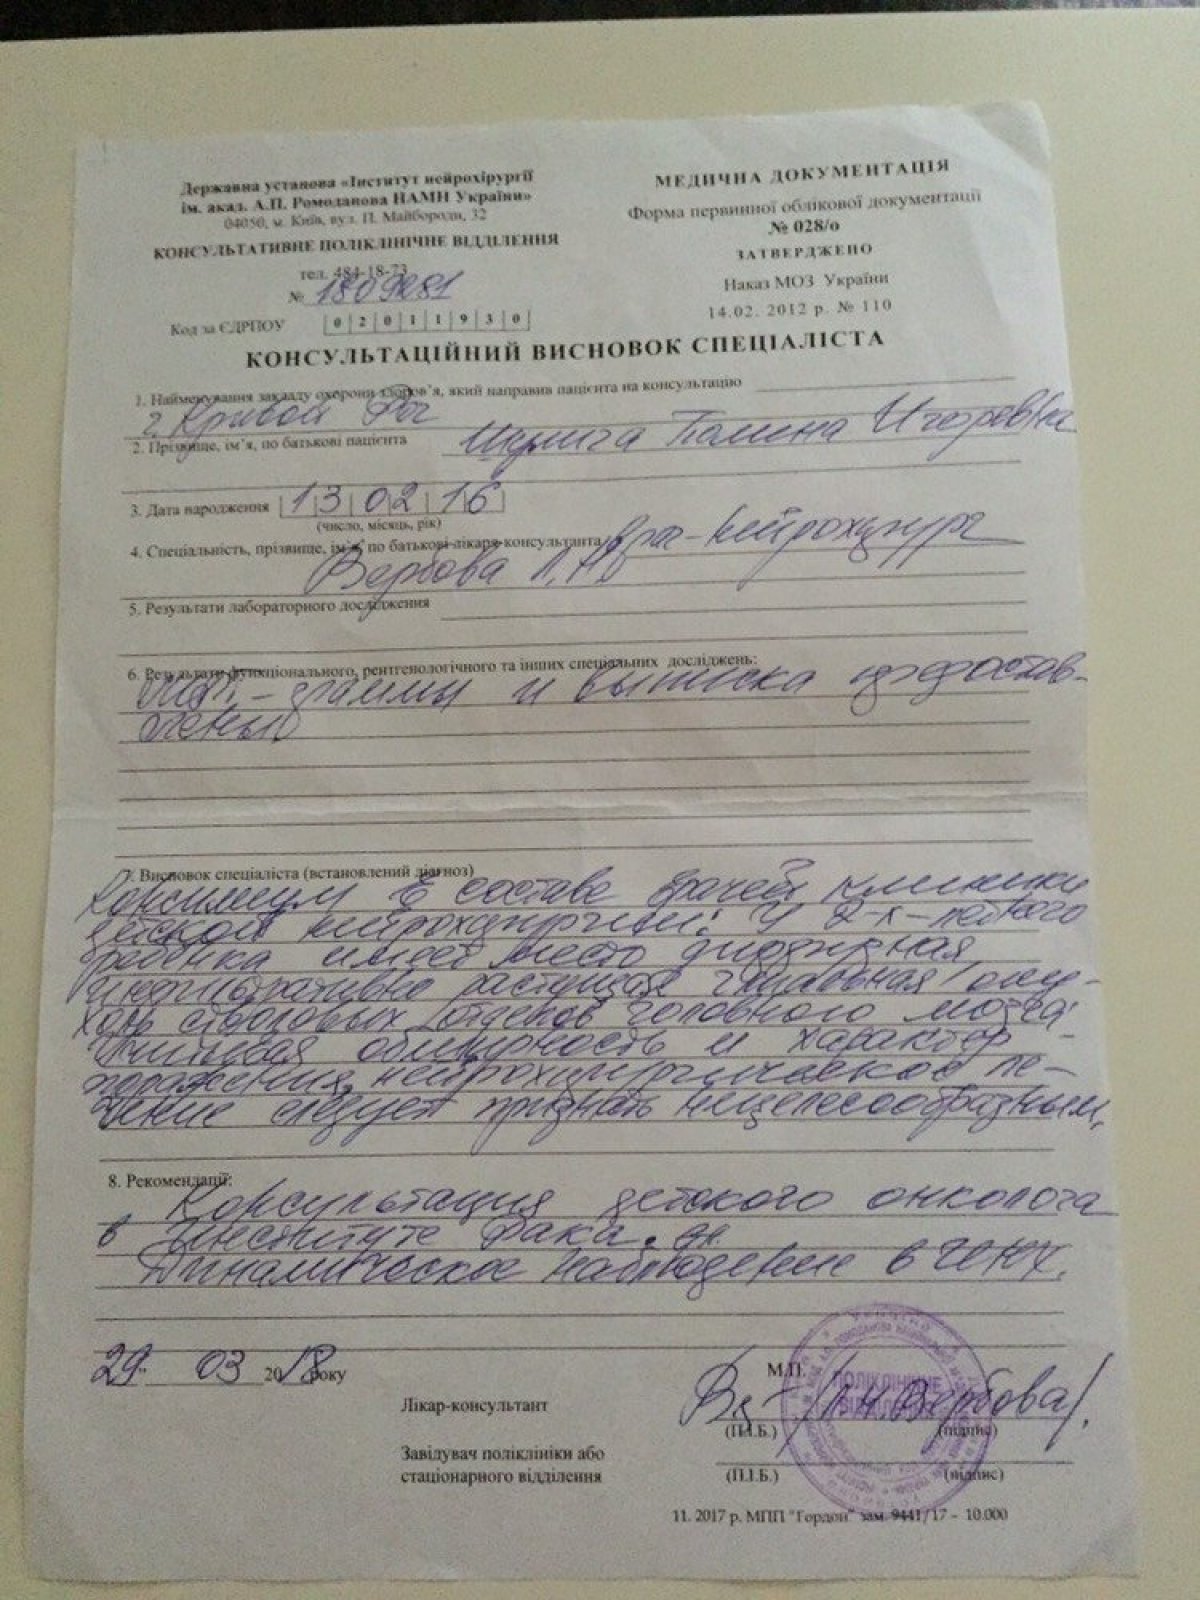 Державна установа «Інститут нейрохірургії
ім. акад. А.П. Ромоданова НАМН України»
04050, м. Київ, вул. П. Майбороди, 32
КОНСУЛЬТАТИВНЕ ПОЛІКЛІНІЧНЕ ВІДДІЛЕННЯ
тел. 484-18-73
№ 1809281
Код за ЄДРПОУ 0 2 0 1 1 9 3 0
МЕДИЧНА ДОКУМЕНТАЦІЯ
Форма первинної облікової документації
№ 028/о
ЗАТВЕРДЖЕНО
Наказ МОЗ України
14.02. 2012 р. № 110
КОНСУЛЬТАЦІЙНИЙ ВИСНОВОК СПЕЦІАЛІСТА
1. Найменування закладу охорони здоров’я, який направив пацієнта на консультацію
г. Кривой Рог
2. Прізвище, ім’я, по батькові пацієнта Полина Игоревна
3. Дата народження 13 02 16
(число, місяць, рік)
4. Спеціальність, прізвище, ім’я, по батькові лікаря-консультанта врач-нейрохирург
Вербова Л.Н.
5. Результати лабораторного дослідження
6. Результати функціонального, рентгенологічного та інших спеціальних досліджень:
и выписка предостав-
лены
7. Висновок спеціаліста (встановлений діагноз)
Консилиум в составе врачей клиники
детской нейрохирургии: У 2-х-летнего
ребенка имеет место диффузная
инфильтративно растущая глиальная опу-
холь стволовых отделов головного мозга.
Учитывая обширность и характер
поражения, нейрохирургическое ле-
чение следует признать нецелесообразным.
8. Рекомендації:
Консультация детского онколога
в Институте Рака.
Динамическое наблюдение в
29 03 2018 року
М.П.
ПОЛІКЛІНІЧНЕ
ВІДДІЛЕННЯ
Лікар-консультант /Л.Н. Вербова/.
(П.І.Б.) (підпис)
Завідувач поліклініки або
стаціонарного відділення
(П.І.Б.) (підпис)
11. 2017 р. МПП "Гордон" зам. 9441/17 – 10.000